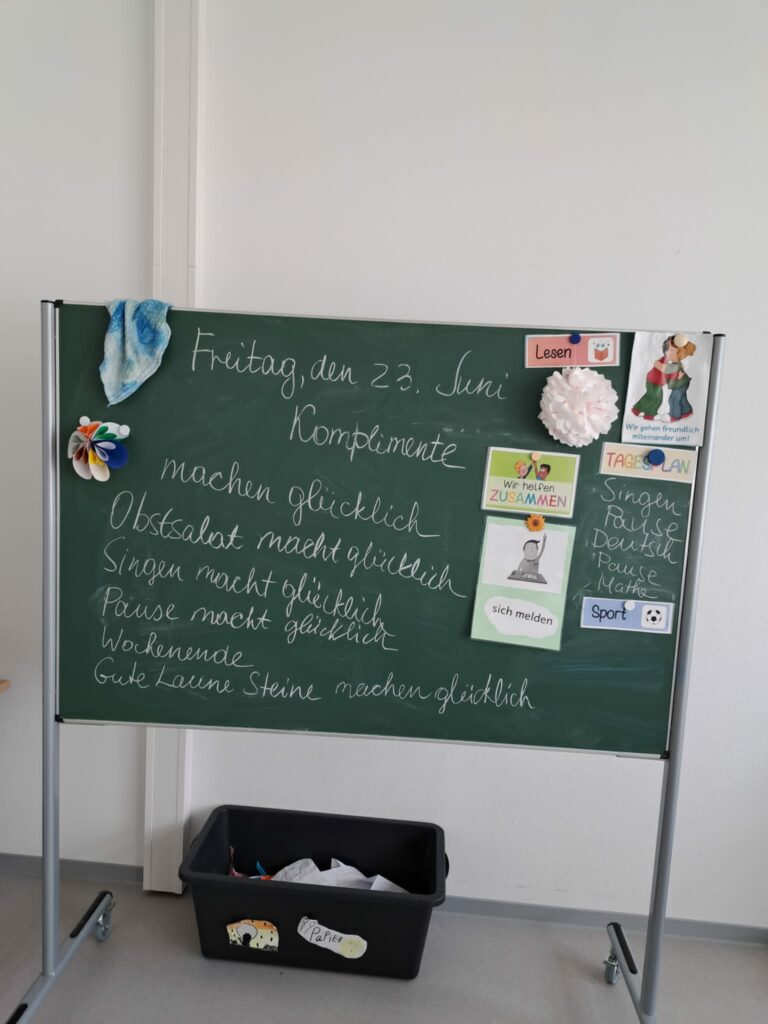 Freitag, den 23. Juni
Komplimente
machen glücklich
Obstsalat macht glücklich
Singen macht glücklich
Pause macht glücklich
Wochenende
Gute Laune Steine machen glücklich
Lesen
Wir gehen freundlich
miteinander um!
Wir helfen
ZUSAMMEN
sich melden
TAGESPLAN
Singen
Pause
Deutsch
Pause
Mathe
Sport
PAPiER